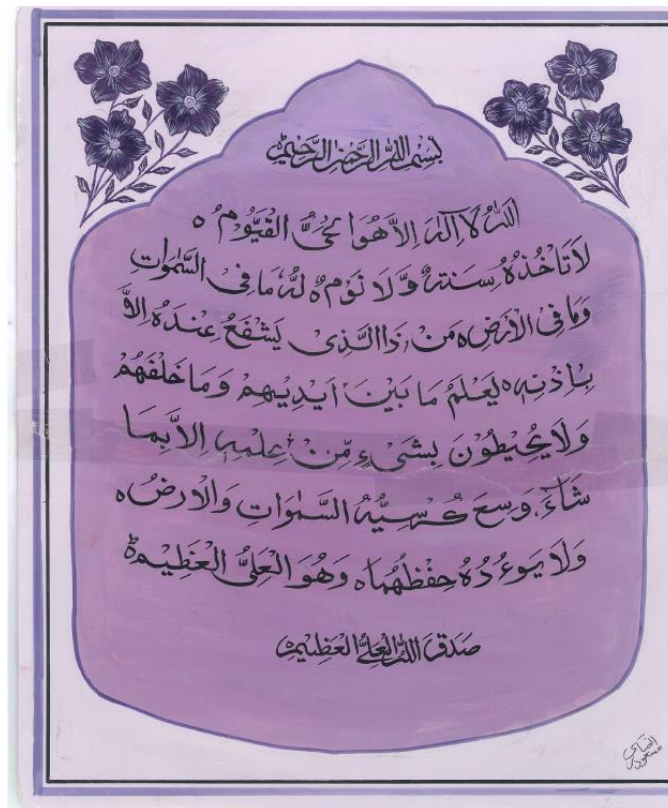 بسم الله الرحمن الرحيم
اللهُ لَا اِلٰهَ اِلَّا هُوَ الحَيُّ القَيُّومُ ه
لَا تَاخُذُهُ سِنَةٌ وَّلَا نَومٌ ه لَهُ مَا فِى السَّمٰوَاتِ
وَمَا فِى الْاَرْضِ ه مَنْ ذَا الَّذِى يَشْفَعُ عِنْدَهُ اِلَّا
بِاِذْنِهِ ه يَعْلَمُ مَا بَيْنَ اَيْدِيْهِمْ وَمَا خَلْفَهُمْ
وَلَا يُحِيْطُوْنَ بِشَىْءٍ مِّنْ عِلْمِهِ اِلَّا بِمَا
شَآءَ، وَسِعَ كُرْسِيُّهُ السَّمٰوَاتِ وَالْاَرضُ ه
وَلَا يَوءُدُهُ حِفْظُهُمَا ه وَهُوَ الْعَلِىُّ الْعَظِيْمُ ه
صَدَقَ اللهُ الْعَلِىُّ الْعَظِيْمُ ه
مسعود